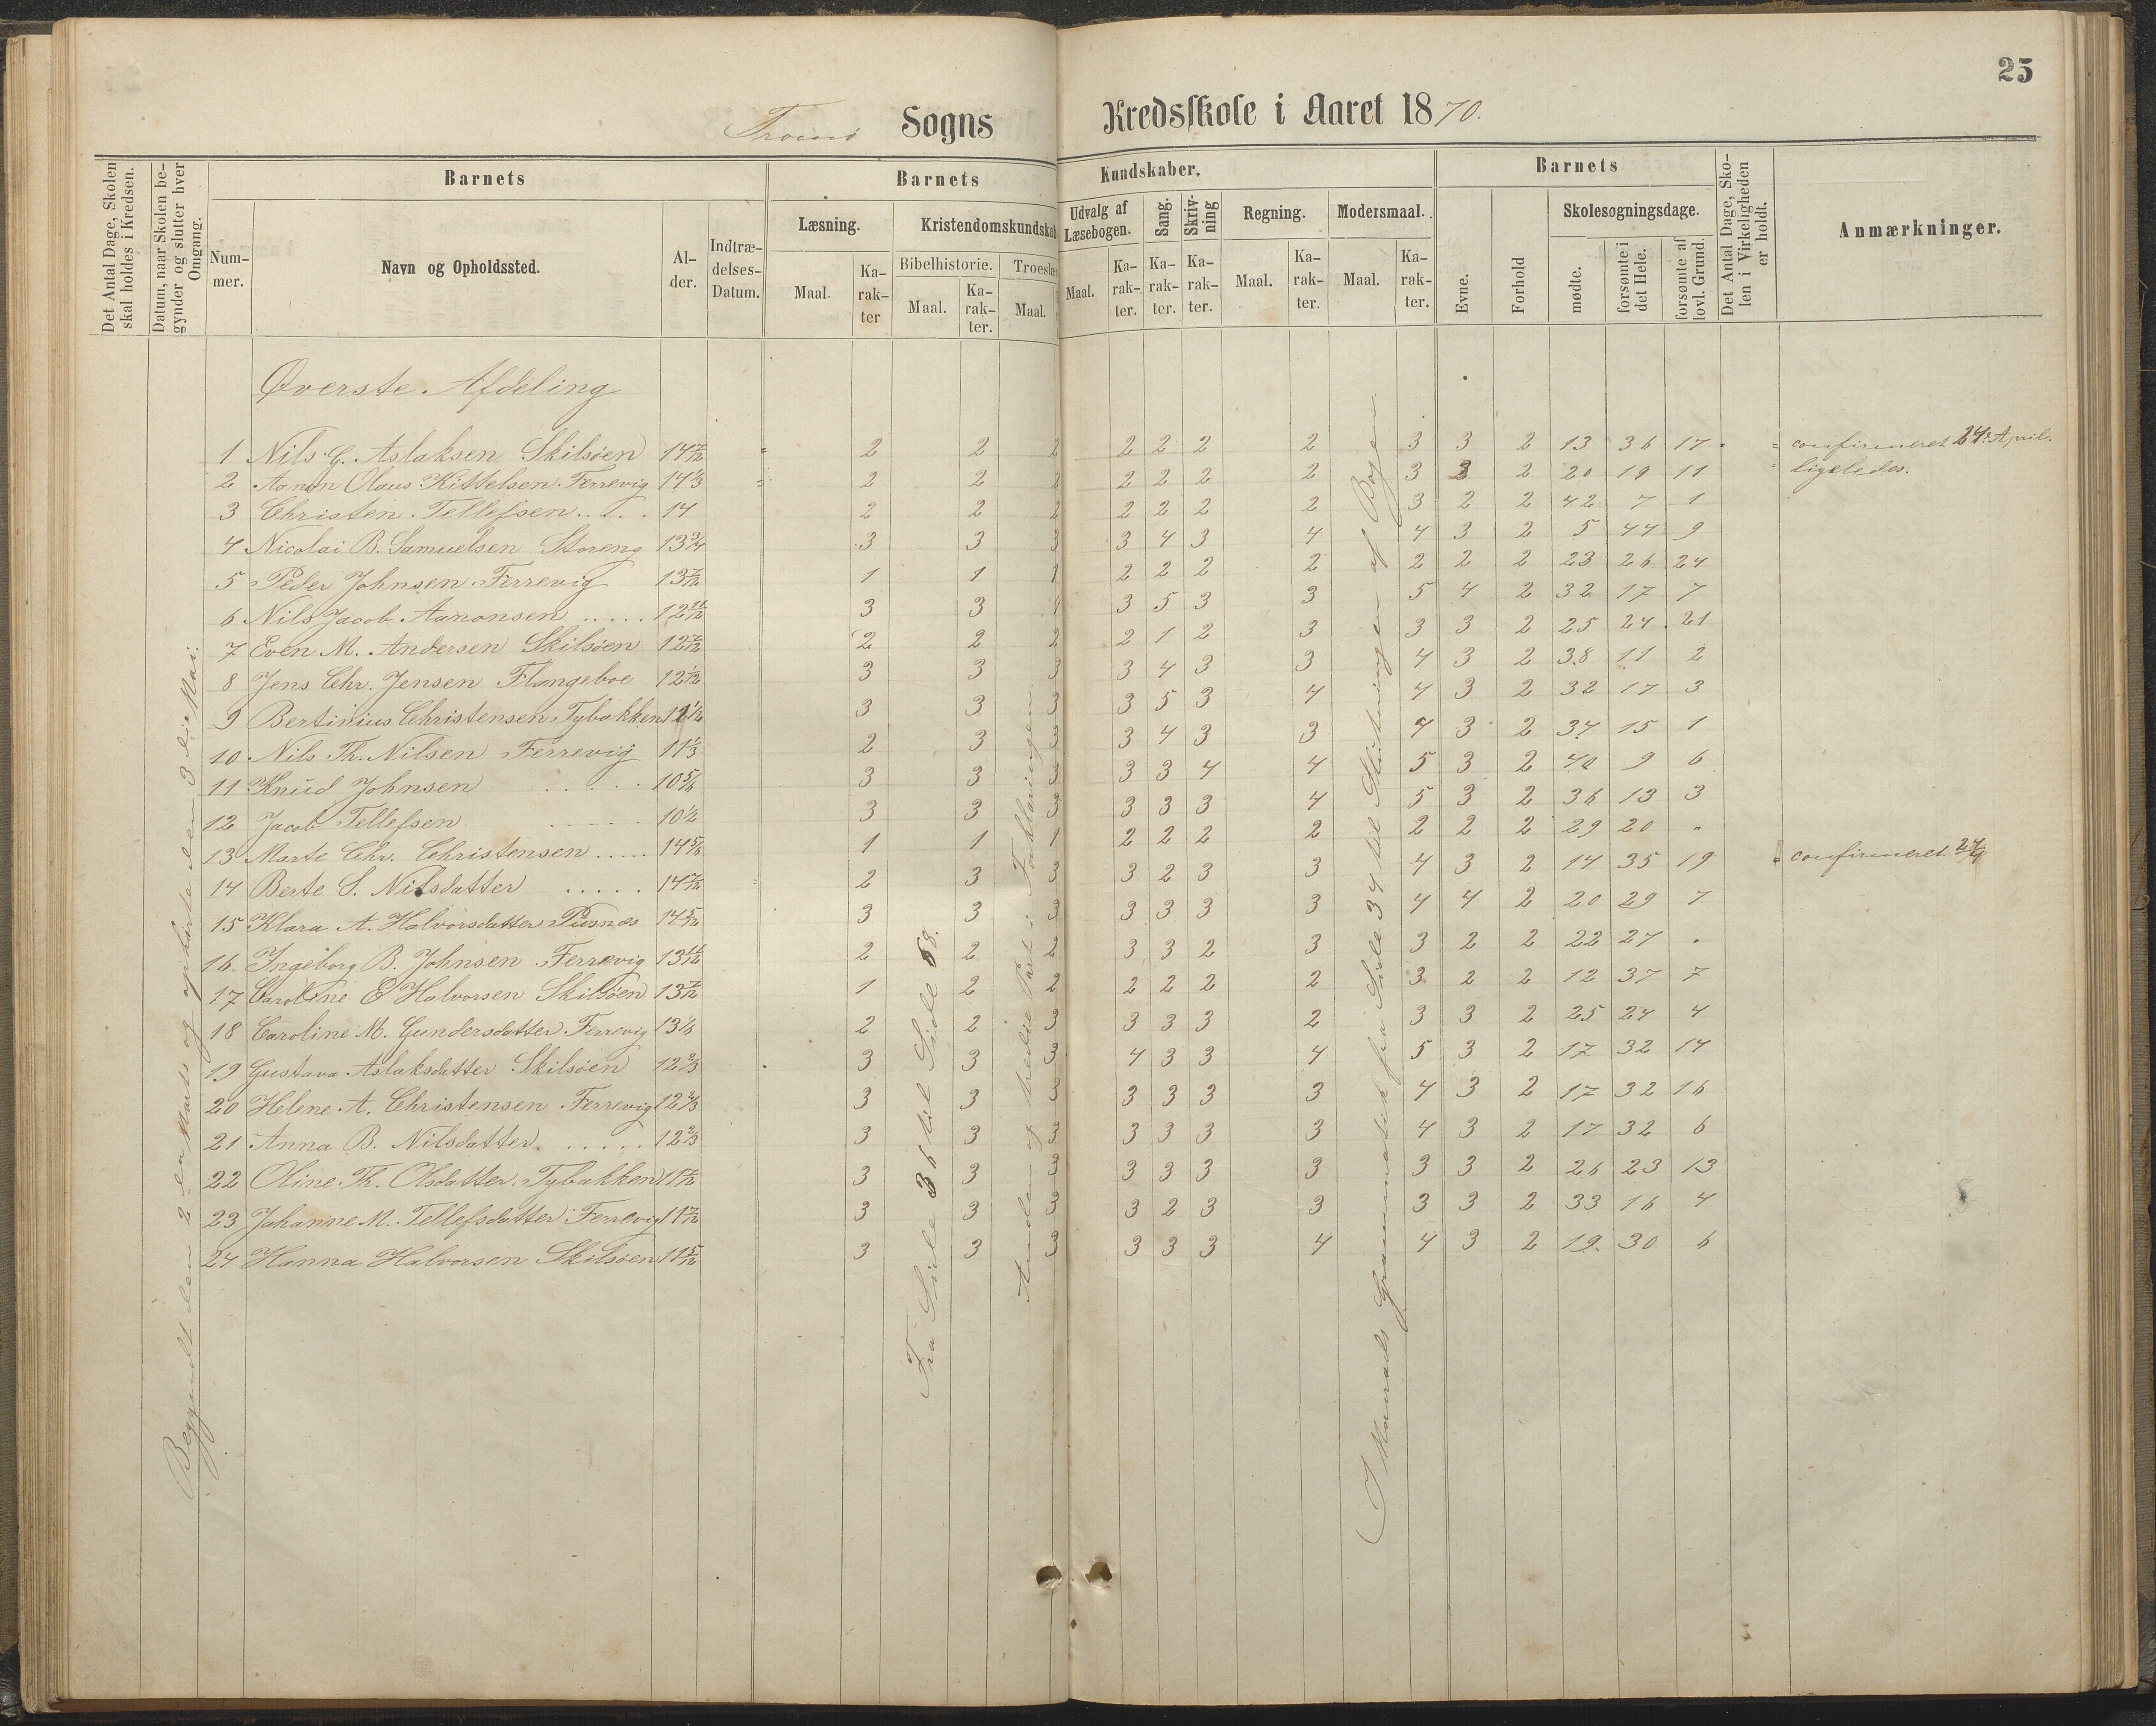 25
Tromø Sogns Kredsskole i Aaret 1870.
Det Antal Dage, Skolen skal holdes i Kredsen.
Datum, naar Skolen begynder og slutter hver Omgang.
Barnets
Nummer.
Navn og Opholdssted.
Alder.
Indtrædelses-Datum.
Barnets Kundskaber.
Læsning.
Maal.
Karakter
Kristendomskundskab
Bibelhistorie.
Maal.
Karakter.
Troeslære
Maal.
Udvalg af Læsebogen.
Maal.
Karakter.
Sang.
Karakter.
Skrivning
Karakter.
Regning.
Maal.
Karakter.
Modersmaal.
Maal.
Karakter.
Barnets
Evne.
Forhold
Skolesøgningsdage.
mødte.
forsømte i det Hele.
forsømte af lovl. Grund.
Det Antal Dage, Skolen i Virkeligheden er holdt.
Anmærkninger.
Øverste Afdeling
1 Nils G. Aslaksen Skilsøen 14 7/12 " 2 2 2 2 2 2 2 3 3 2 13 36 17 " confirmeret 24de April.
2 Aanon Olaus Kittelsen Ferrevig 14 1/3 " 2 2 2 2 2 2 2 3 3 2 20 19 11 " ligeledes.
3 Christen Tellefsen . . . . 14 2 2 2 2 2 2 2 3 2 2 42 7 1
4 Nicolai B. Samuelsen Storeng 13 3/4 3 3 3 3 4 3 4 4 3 2 5 44 9
5 Peder Johnsen Ferrevig 13 7/12 1 1 1 2 2 2 2 2 2 2 23 26 24
6 Nils Jacob Aanonsen . . . . . 12 11/12 3 3 4 3 5 3 3 5 4 2 32 17 7
7 Even M. Andersen Skilsøen 12 7/12 2 2 2 2 1 2 3 3 3 2 25 24 21
8 Jens Chr. Jensen Flangeboe 12 1/2 3 3 3 3 4 3 3 4 3 2 38 11 2
9 Bertinius Christensen Tybakken 12 1/12 3 3 3 3 5 3 4 4 3 2 32 17 3
10 Nils Th. Nilsen Ferrevig 11 1/3 2 3 3 3 4 3 3 4 3 2 34 15 1
11 Knud Johnsen . . . . . 10 5/6 3 3 3 3 3 4 4 5 3 2 40 9 6
12 Jacob Tellefsen . . . . . 10 1/2 3 3 3 3 3 3 4 5 3 2 36 13 3
13 Marte Chr. Christensen . . . . . 14 5/6 1 1 1 2 2 2 2 2 2 2 29 20 "
14 Berte S. Nilsdatter . . . . . 14 7/12 " 2 3 3 3 2 3 3 4 3 2 14 35 19 " confirmeret 24/4
15 Klara A. Halvorsdatter Pusnæs 14 5/12 3 3 3 3 3 3 3 4 4 2 20 29 7
16 Ingeborg B. Johnsen Ferrevig 13 11/12 2 2 2 3 3 2 3 3 2 2 22 27 "
17 Caroline E Halvorsen Skilsøen 13 7/12 1 2 2 2 2 2 2 3 2 2 12 37 7
18 Caroline M. Gundersdatter Ferrevig 13 1/6 2 2 3 3 3 3 2 3 3 2 25 24 4
19 Gustava Aslaksdatter Skilsøen 12 2/3 3 3 3 4 3 3 4 5 3 2 17 32 14
20 Helene A. Christensen Ferrevig 12 2/3 3 3 3 3 3 3 3 4 3 2 17 32 16
21 Anna B. Nilsdatter . . . . . 12 2/3 3 3 3 3 3 3 3 4 3 2 17 32 6
22 Oline Th. Olsdatter Tybakken 11 7/12 3 3 3 3 3 3 3 3 3 2 26 23 13
23 Johanne M. Tellefsdatter Ferrevig 11 7/12 3 3 3 3 2 3 3 3 3 2 33 16 4
24 Hanna Halvorsen Skilsøen 11 5/12 3 3 3 3 3 3 4 4 3 2 19 30 6
Begyndt den 2den Marts og ophørte den 3die Mai.
Fra Side 36 til Side 58.
Anden og tredie Part i Forklaringen.
I Grammatik fra Side 34 til Slutningen af Bogen.